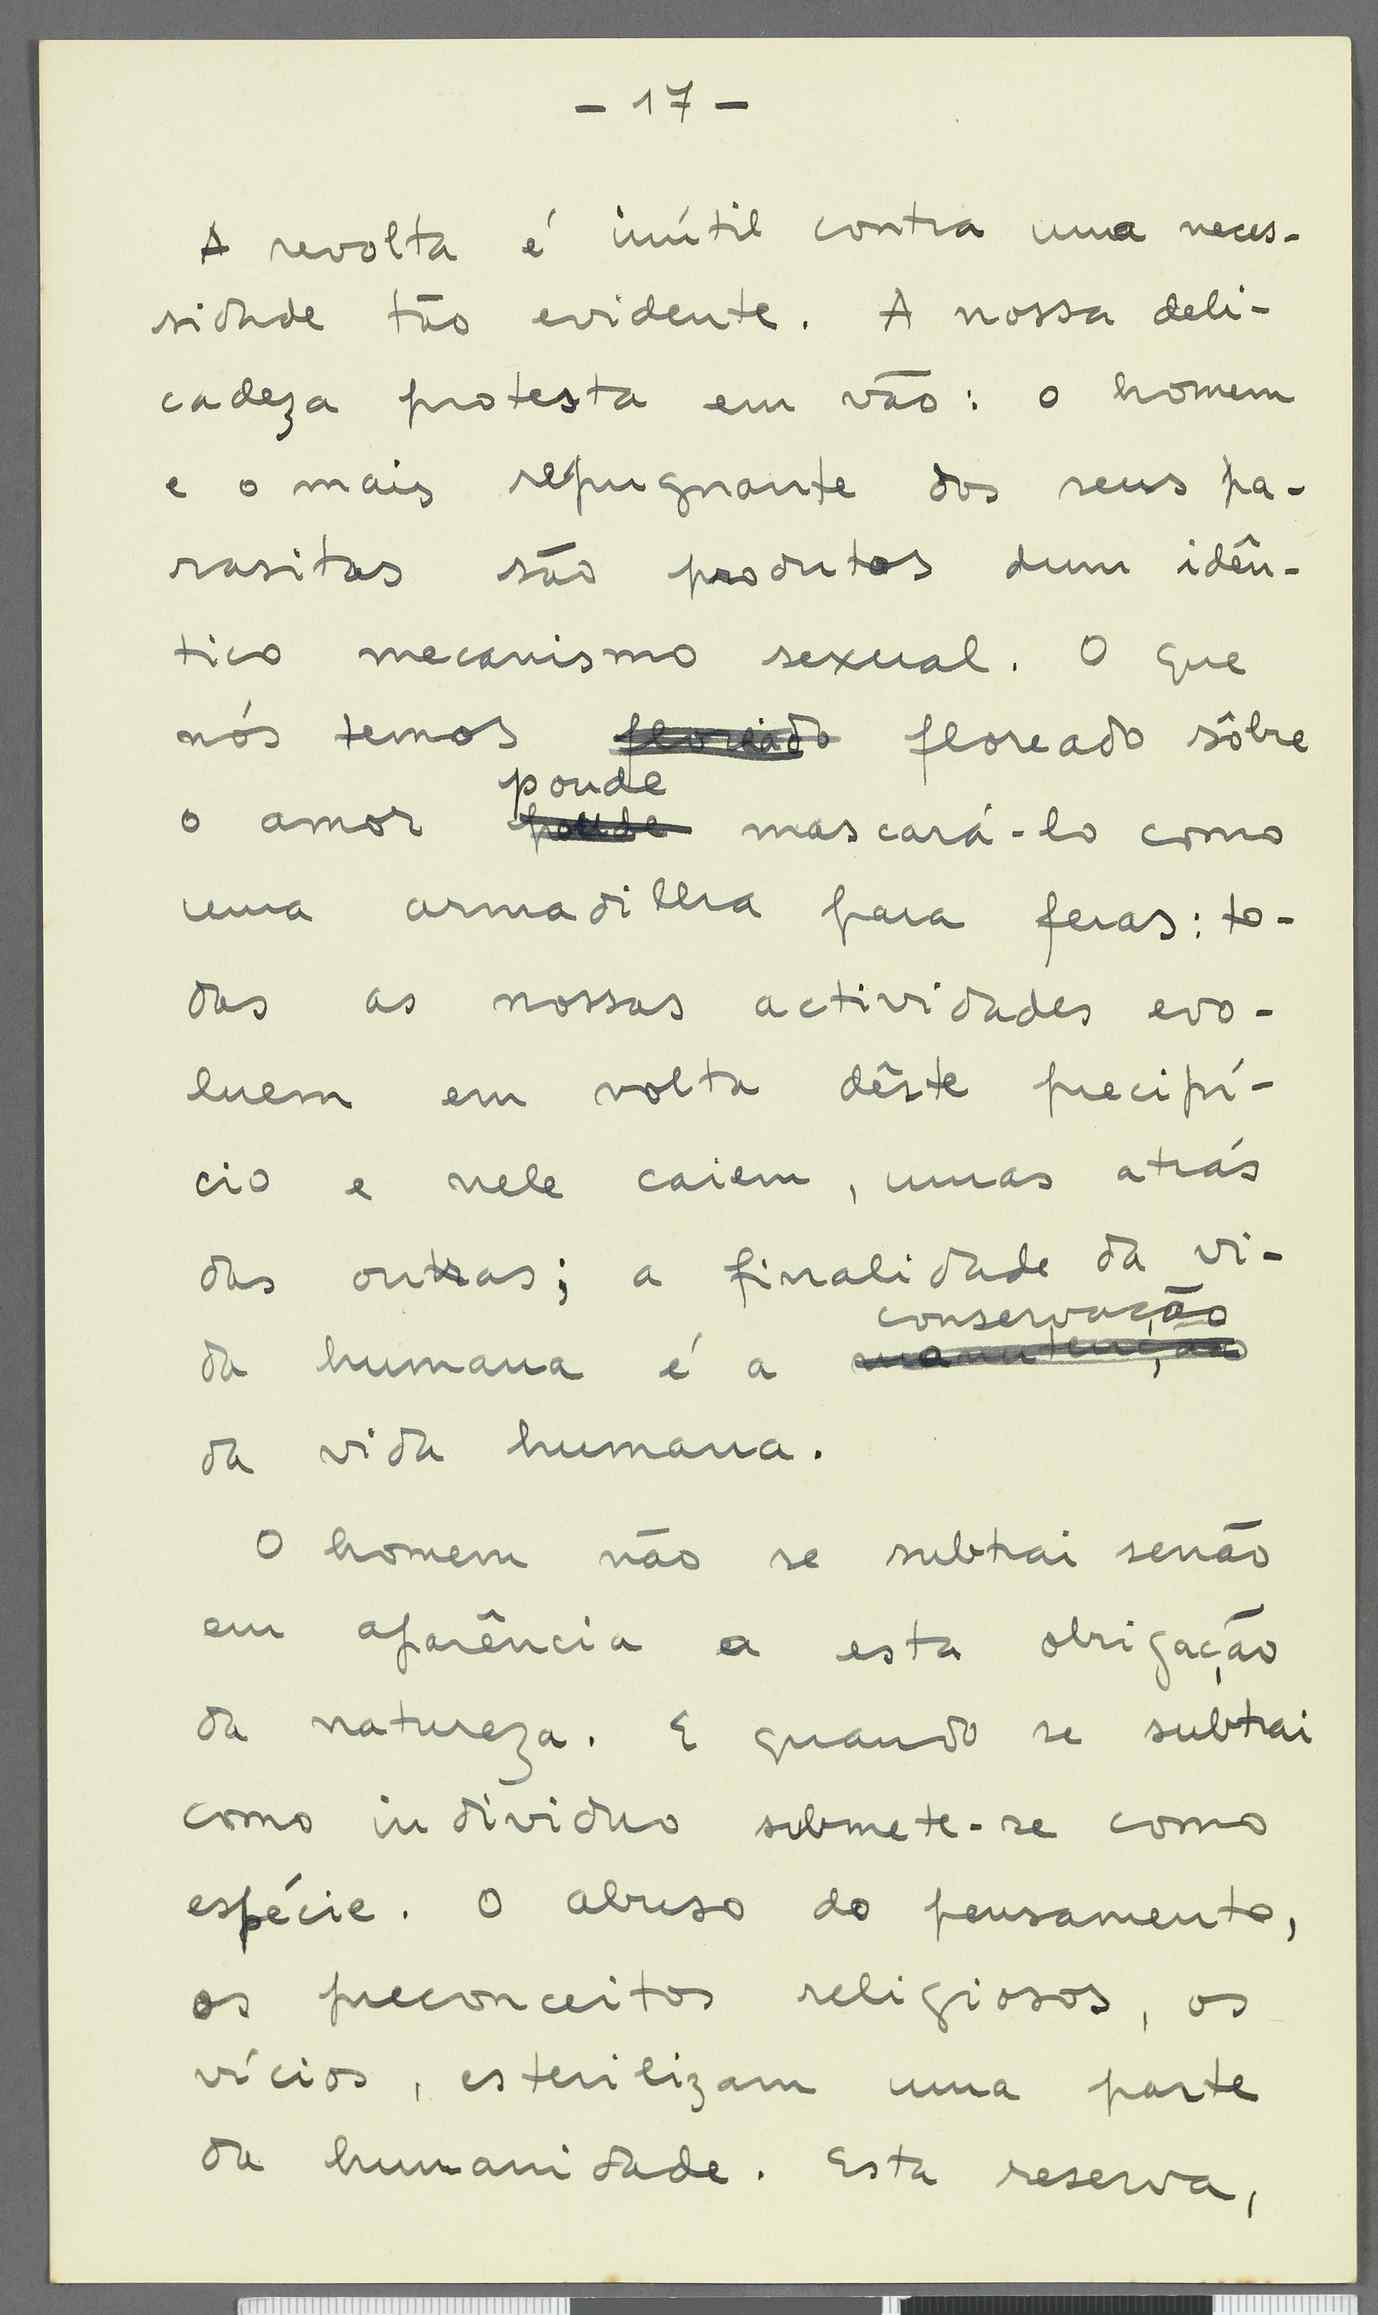 - 17 -
A revolta é inútil contra uma neces-
sidade tão evidente. A nossa deli-
cadeza protesta em vão: o homem
e o mais repugnante dos seus pa-
rasitas são produtos dum idên-
tico mecanismo sexual. O que
nós temos floreado floreado sôbre
poude
o amor poude mascará-lo como
uma armadilha para feras: to-
das as nossas actividades evo-
luem em volta dêste precipí-
cio e nele caiem, umas atrás
das outras; a finalidade da vi-
conservação
da humana é a manutenção
da vida humana.
O homem não se subtrai senão
em aparência a esta obrigação
da natureza. E quando se subtrai
como indivíduo submete-se como
espécie. O abuso do pensamento,
os preconceitos religiosos, os
vícios, esterilizam uma parte
da humanidade. Esta reserva,